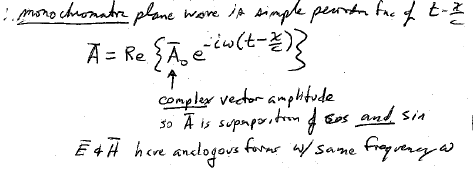 ∴ monochromatic plane wave is simple periodic fnc of t - x/c
Ā = Re { Ā₀ e^{-iω(t - x/c)} }
↑
complex vector amplitude
so Ā is superposition of cos and sin
Ē & H̄ have analogous forms w/ same frequency ω